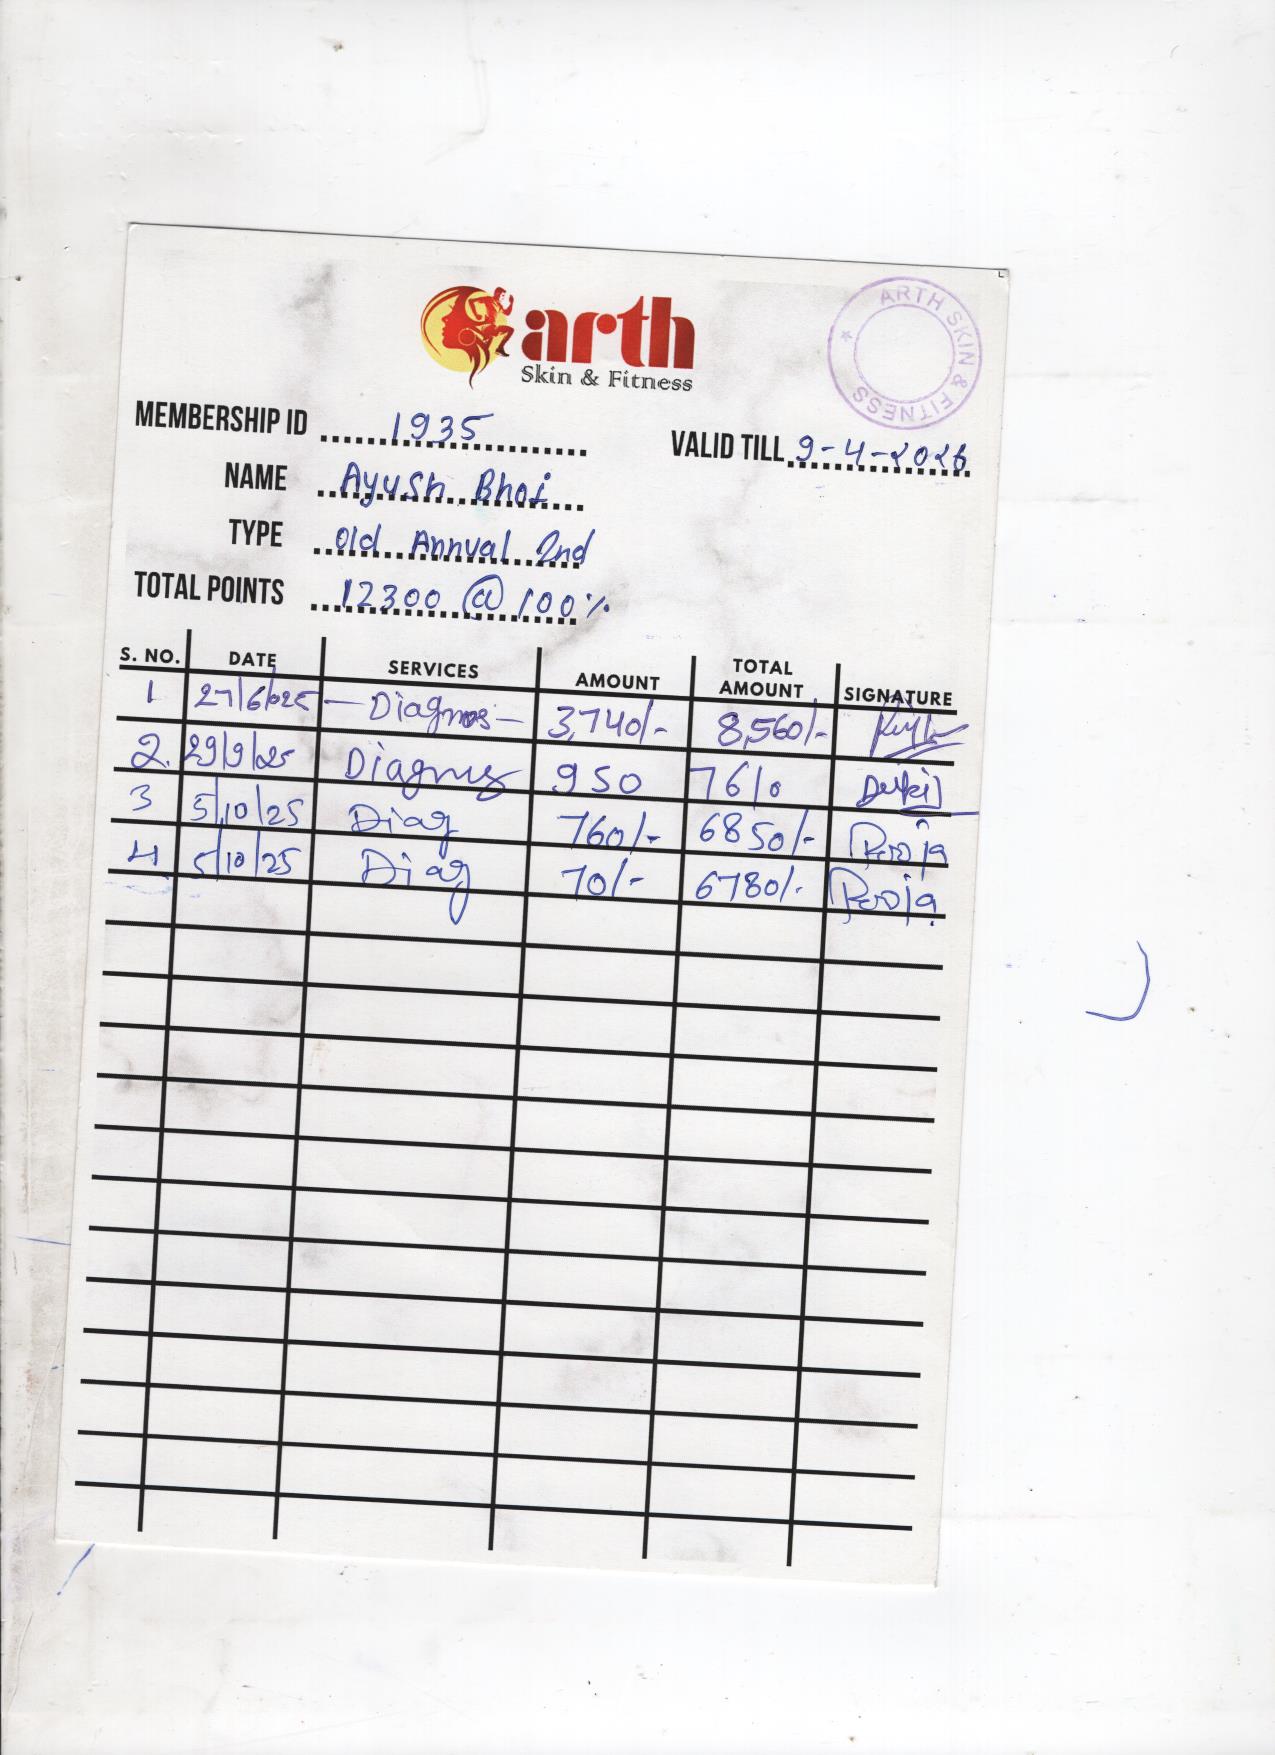 arth
Skin & Fitness
ARTH SKIN & FITNESS
MEMBERSHIP ID 1935
VALID TILL 9-4-2026
NAME Ayush Bhoi
TYPE Old Annual 2nd
TOTAL POINTS 12300 @ 100%
S. NO. DATE SERVICES AMOUNT TOTAL AMOUNT SIGNATURE
1 27/6/025 - Diagnos - 3,740/- 8,560/-
2. 29/9/25 Diagnos 950 7610
3 5/10/25 Diag 760/- 6850/- Pooja
4. 5/10/25 Diag 70/- 6780/- Pooja